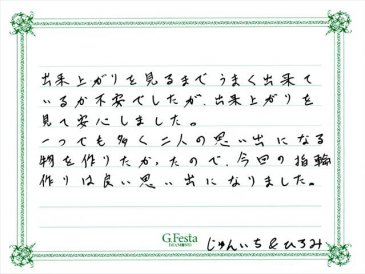 出来上がりを見るまでうまく出来て
いるか不安でしたが、出来上がりを
見て安心しました。
一つでも多く二人の思い出になる
物を作りたかったので、今回の指輪
作りは良い思い出になりました。
G.Festa
DIAMOND
じゅんいち&ひろみ